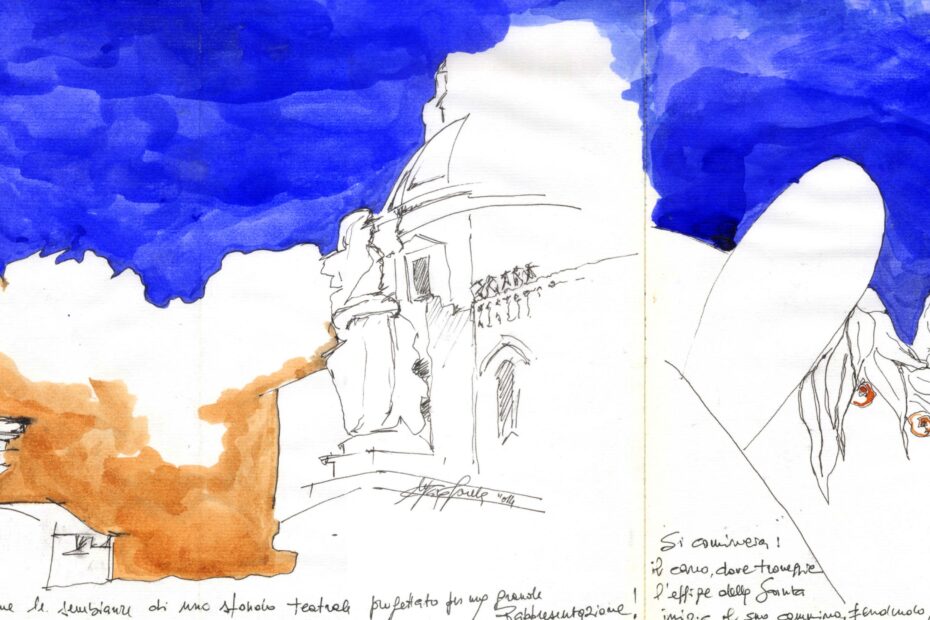 ne le sembianze di uno sfondo teatrale progettato per una grande
Rappresentazione!
Si comincia!
il carro, dove troneggia
l'effige della Santa
inizia il suo cammino, fendendo,